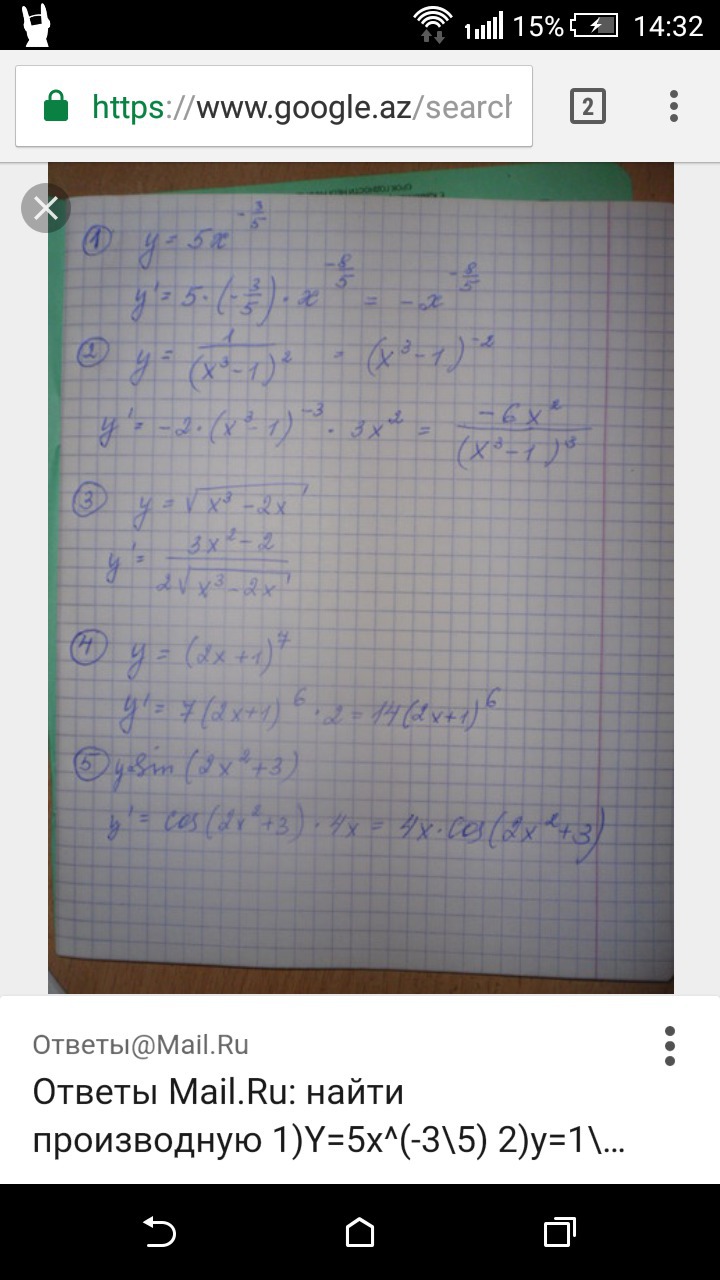 15% 14:32
https://www.google.az/search
2
① y = 5x^(-3/5)
y' = 5·(-3/5)·x^(-8/5) = -x^(-8/5)
② y = 1/(x³-1)² = (x³-1)⁻²
y' = -2·(x³-1)⁻³·3x² = -6x²/(x³-1)³
③ y = √(x³-2x)
y' = (3x²-2)/(2√(x³-2x))
④ y = (2x+1)⁷
y' = 7(2x+1)⁶·2 = 14(2x+1)⁶
⑤ y=Sin(2x²+3)
y' = cos(2x²+3)·4x = 4x·cos(2x²+3)
Ответы@Mail.Ru
Ответы Mail.Ru: найти
производную 1)Y=5x^(-3\5) 2)y=1\...